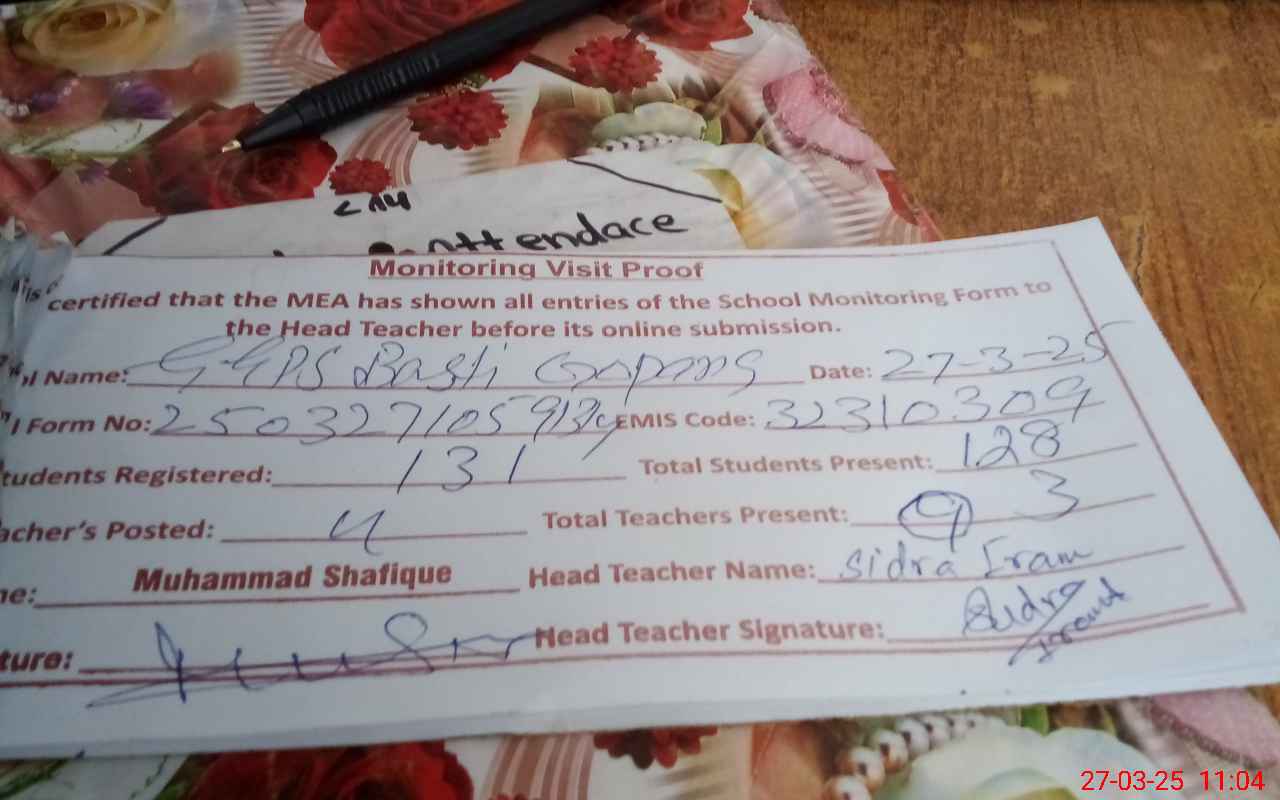 Attendace
Monitoring Visit Proof
certified that the MEA has shown all entries of the School Monitoring Form to
the Head Teacher before its online submission.
Name: GGPS Basti Date: 27-3-25
Form No: EMIS Code: 32310309
tudents Registered: 131 Total Students Present: 128
acher's Posted: 4 Total Teachers Present: 3
ne: Muhammad Shafique Head Teacher Name: Sidra Iram
ture: Head Teacher Signature: Sidra Iram
27-03-25 11:04